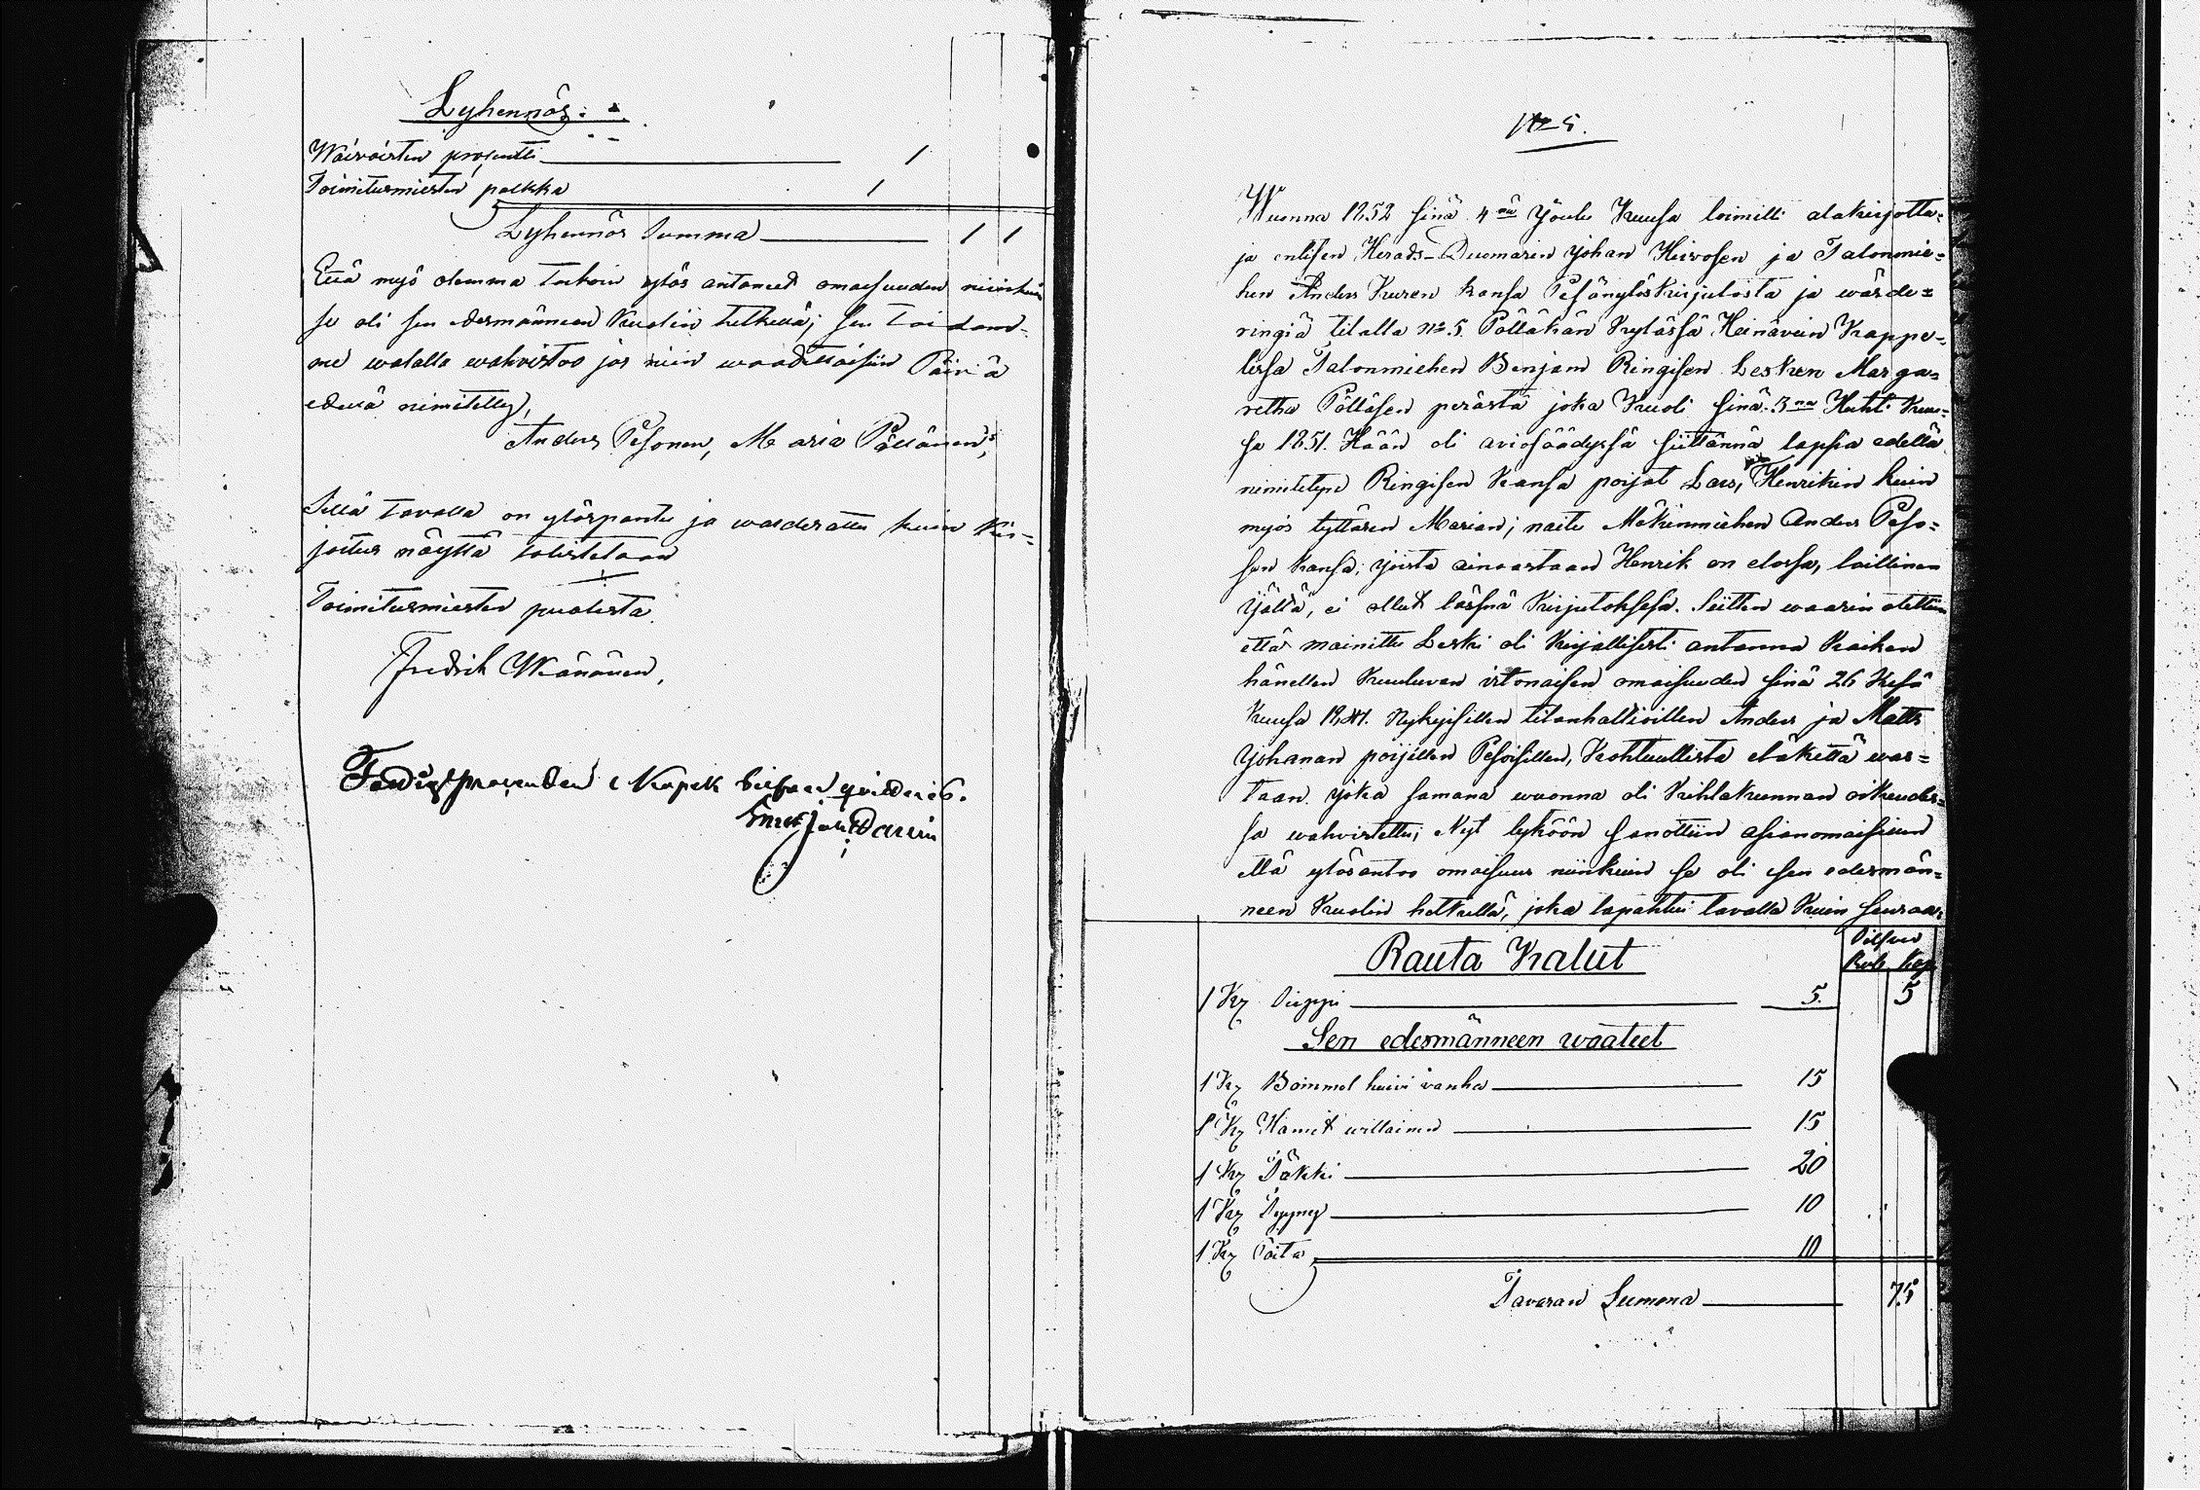 Lyhennös:
Waivaisten prosentti 1
Toimitusmiesten palkka 1
Lyhennös Summa 1 1
Että myö olemma tarkoin ylös antaneet omaisuuden niinkuin
se oli sen edesmänneen Kuolin hetkellä; sen toi dam-
me walalla wahvistoa jos niin waadittaisiin Päivä
edellä nimitetty,
Anders Pesonen, Maria Pöllänen;
Sillä tavalla on ylöspantu ja warderattu kuin kir-
joitus näyttä todistetaan
Toimitusmiesten puolesta
Fredrik Wänänen,
Fattigprosenten 1 Kopek silfver qvitteras.
No 5.
Wuonna 1852 sinä 4nä Joulu Kuusa toimitti alakirjotta-
ja entisen Herads-Duomarin Johan Heivosen ja Talonmie-
hen Anders Kuren kansa Pesänylöskirjutosta ja wärde-
ringiä tilalla No 5 Pölläkän Kylässä Heinävein Kappe-
lissa Talonmiehen Benjam Ringisen Lesken Marga-
retha Pölläsen perästä joka Kuoli sinä 3na Huhti Kuu-
sa 1851. Hään oli aviosäädyssä siittännä lapsia edellä
nimitetyn Ringisen Kansa poijat Lars, Henrikin kuin
myös tyttären Marian; naitu Mäkinmiehen Anders Peso-
sen kansa; joista ainoastaan Henrik on elossa, laillinen
Jällä, ei ollut läsnä Kirjutoksesa. Siitten waarin otettiin
että mainittu Leski oli Kirjallisesti antanna Kaiken
hänellen Kuuluvan irtonaisen omaisuuden sinä 26 Kesä
Kuusa 1841. Nykyisillen tilanhaltioillen Anders ja Matts
Johanan poijillen Pesoisillen, Kohtuullista eläkettä was-
taan. joka samana wuonna oli Kihlakunnan oikeudes-
sa wahvistettu; Nyt lyköön sanottiin asianomaisiin
että ylösantoo omaisuus niinkuin se oli sen edesmän-
neen Kuolin hetkellä, joka tapahtui tavalla Kuin seuraa.
Rauta Kalut
Silfver
Rub Kop
1 K; Sirppi 5. 5
Sen edesmänneen waateet
1 K; Bommol huivi vanha 15
1 K; Hamet willainen 15
1 K; Täkki 20
1 K; Tyyny 10
1 K; Paita 10
Tavaran Summa 75